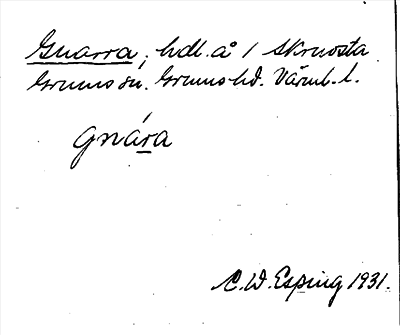 Gnarra, hdl. å 1 Skruvsta
Grums sn. Grums hd. Värml. l.
gnára
C. W. Esping 1931.